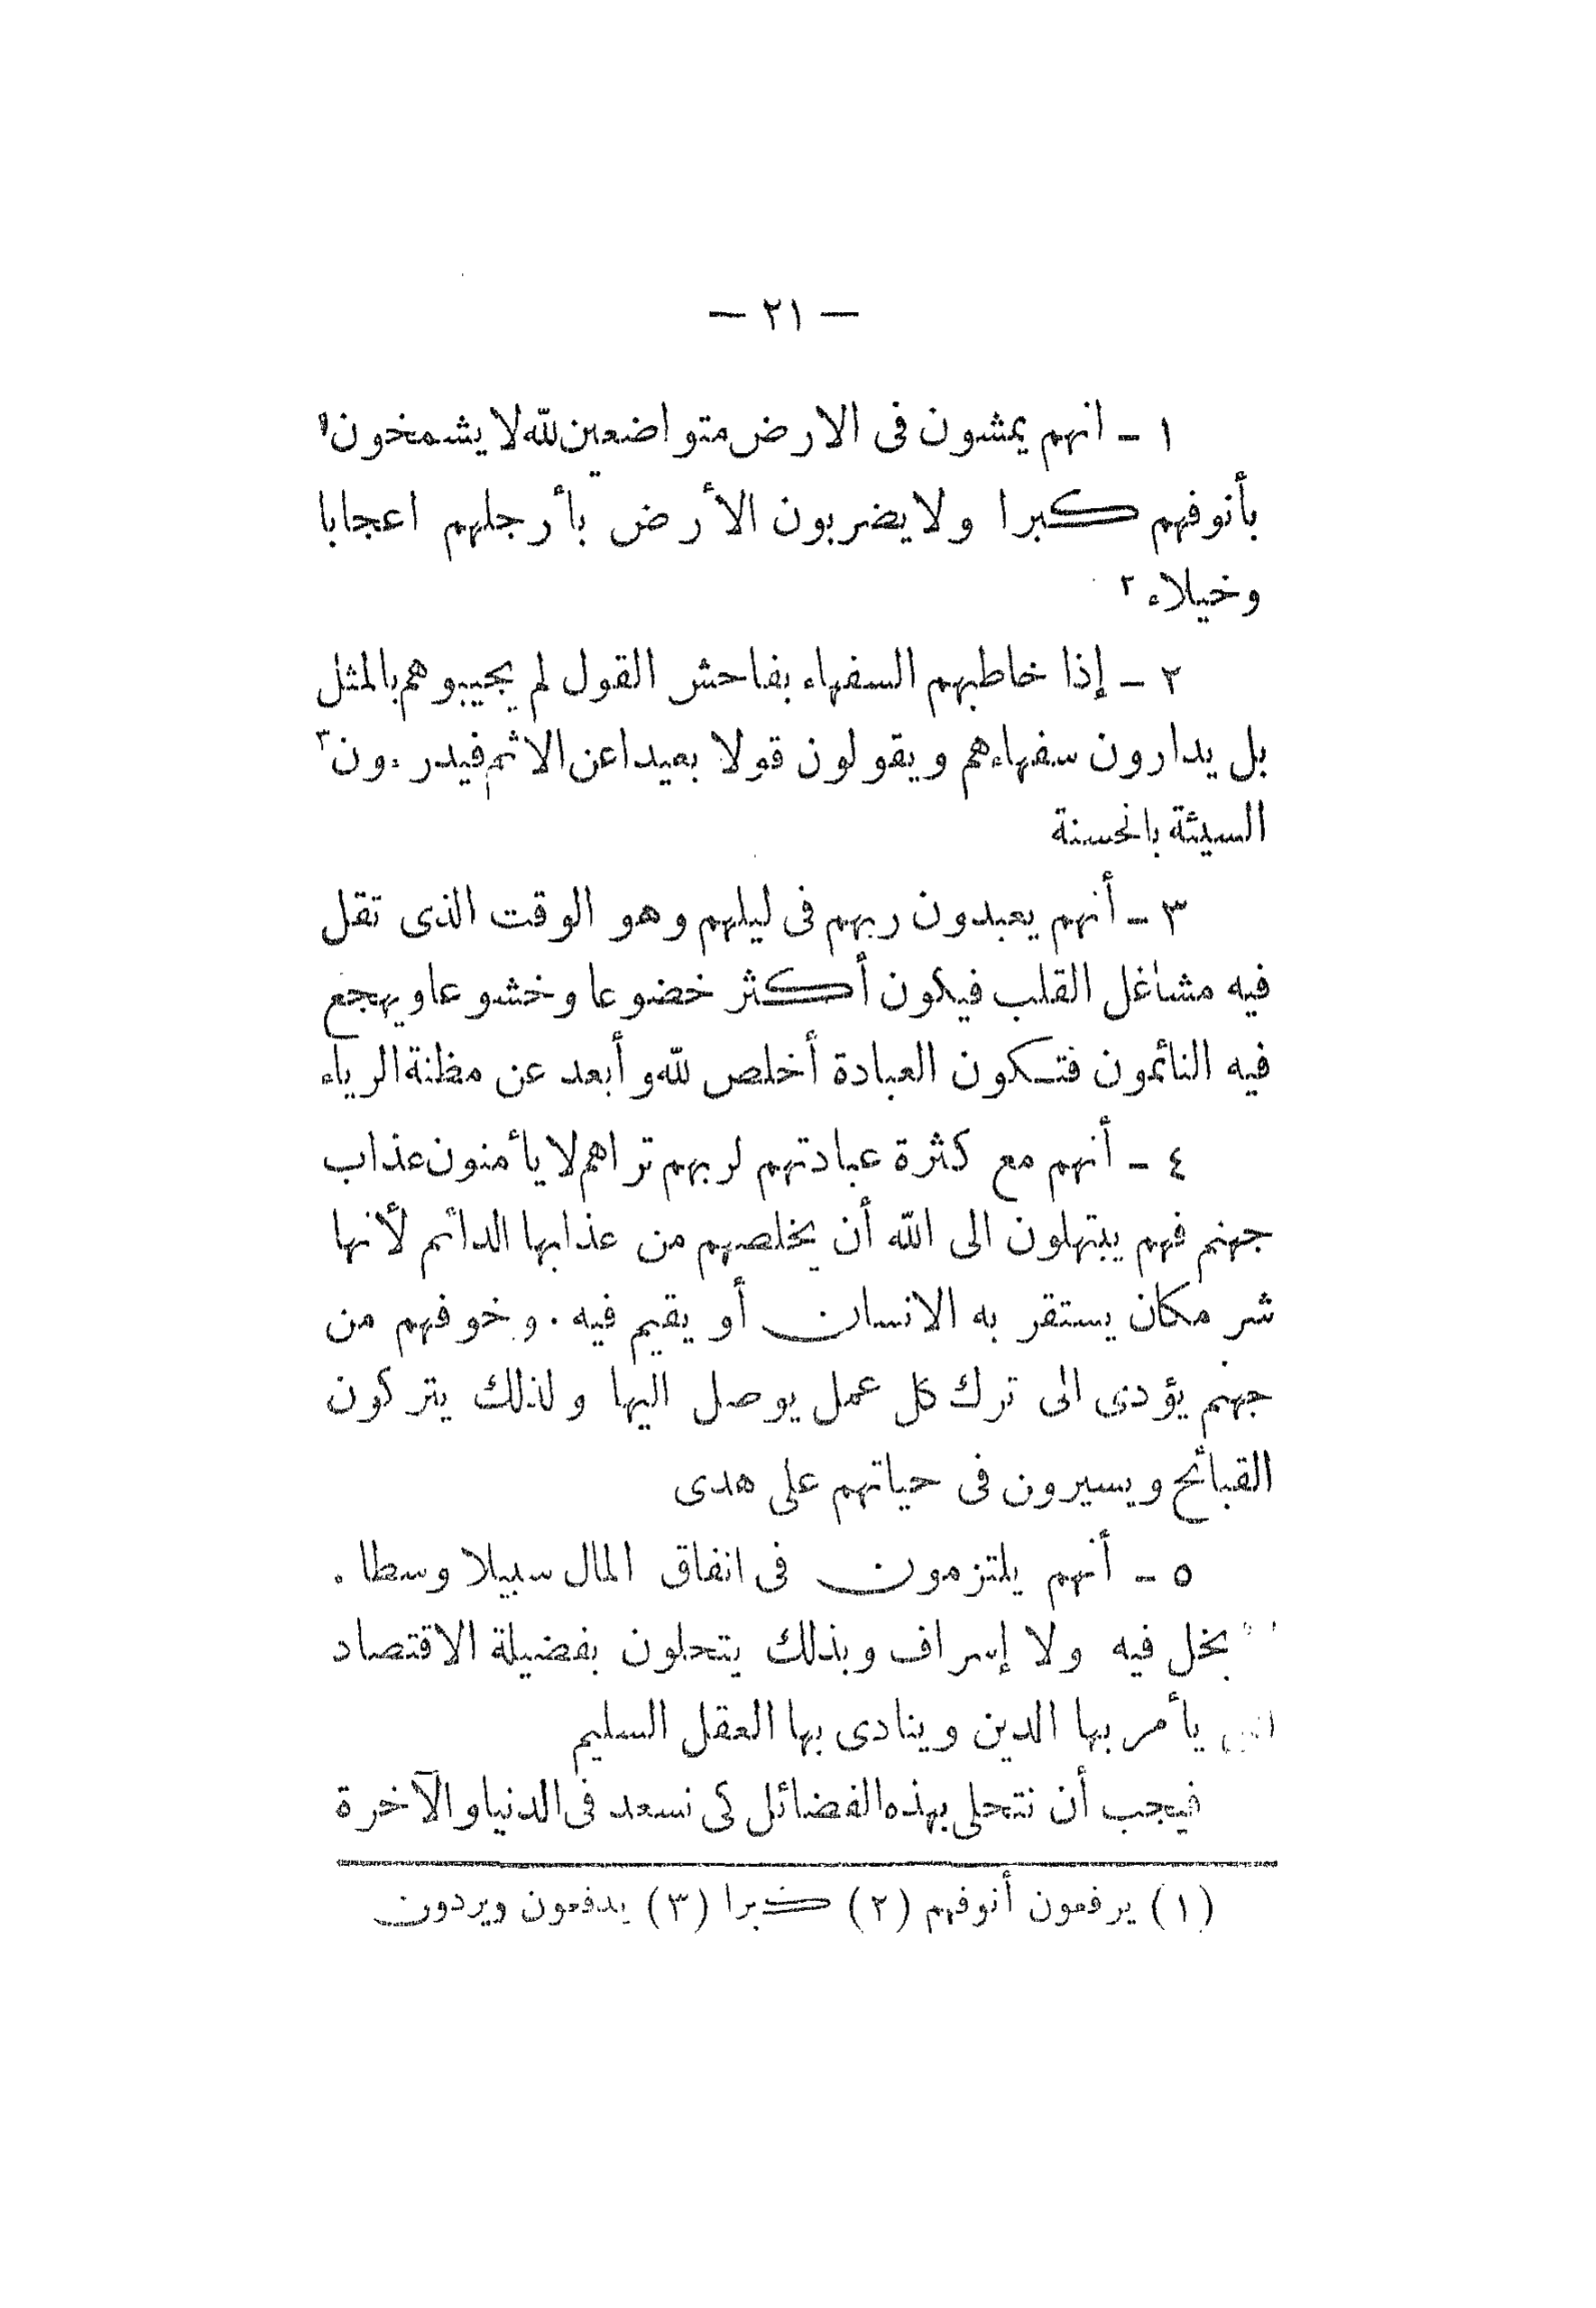 — ٢١ —
١ - انهم يمشون فى الارض متواضعين لله لا يشمخون١
بأنوفهم كبرا ولا يضربون الأرض بأرجلهم اعجابا
وخيلاء ٢
٢ - إذا خاطبهم السفهاء بفاحش القول لم يجيبوهم بالمثل
بل يدارون سفهاءهم ويقولون قولا بعيدا عن الاثم فيدرءون٣
السيئة بالحسنة
٣ - أنهم يعبدون ربهم فى ليلهم وهو الوقت الذى تقل
فيه مشاغل القلب فيكون أكثر خضوعا وخشوعا ويهجع
فيه النائمون فتكون العبادة أخلص لله وأبعد عن مظنة الرياء
٤ - أنهم مع كثرة عبادتهم لربهم تراهم لا يأمنون عذاب
جهنم فهم يبتهلون الى الله أن يخلصهم من عذابها الدائم لأنها
شر مكان يستقر به الانسان أو يقيم فيه . وخوفهم من
جهنم يؤدى الى ترك كل عمل يوصل اليها ولذلك يتركون
القبائح ويسيرون فى حياتهم على هدى
٥ - أنهم يلتزمون فى انفاق المال سبيلا وسطا .
بخل فيه ولا إسراف وبذلك يتحلون بفضيلة الاقتصاد
يأمر بها الدين وينادى بها العقل السليم
فيجب أن نتحلى بهذه الفضائل كى نسعد فى الدنيا والآخرة
(١) يرفعون أنوفهم (٢) كبرا (٣) يدفعون ويردون